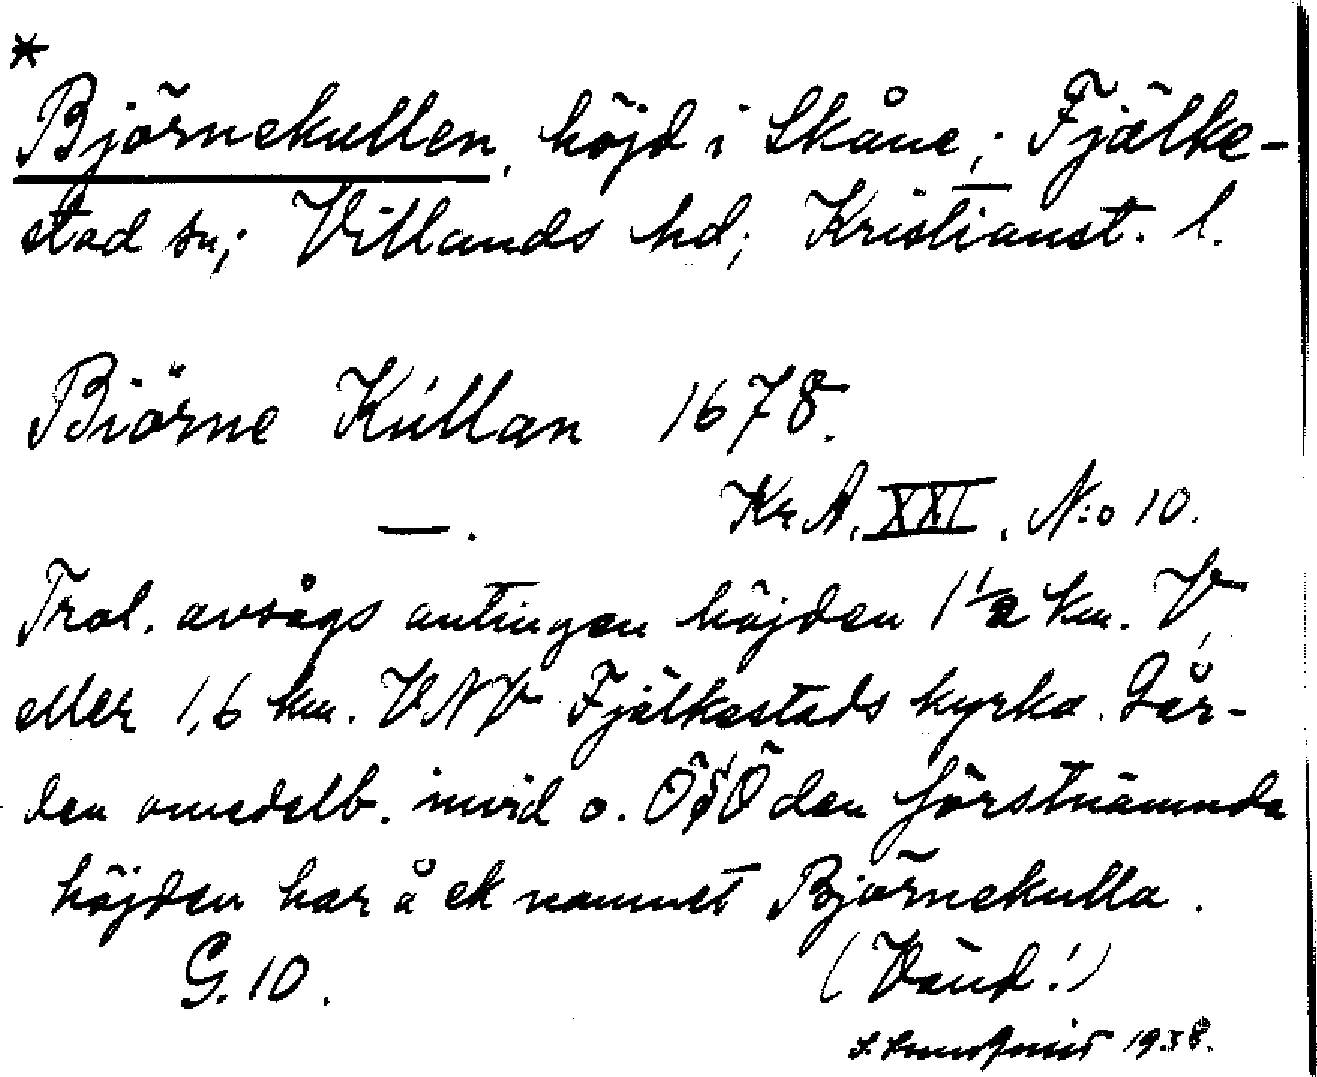 *
Björnekullen, höjd i Skåne; Fjälke-
stad sn; Villands hd; Kristianst. l.
Biörne Kullan 1678.
Kr. A. XXI. N:o 10.
—.
Trol. avsågs antingen höjden 1 1/2 km. V,
eller 1,6 km. VNV Fjälkestads kyrka. Går-
den omedelb. invid o. Ö den förstnämnda
höjden har å ek namnet Björnekulla.
G. 10. (Vänd!)
1938.